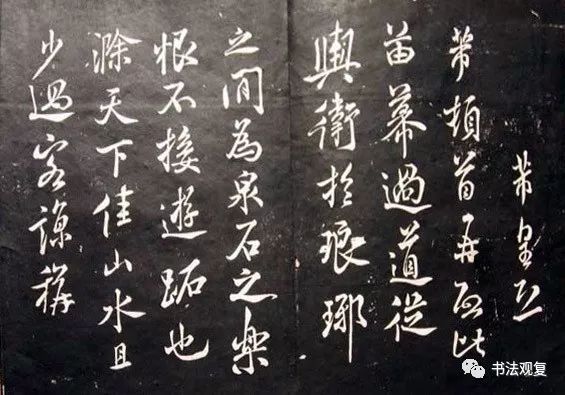 芾皇恐
芾頓首再啟比
苗幕過道從
輿衛於琅琊
之間為泉石之樂
恨不接遊也
滁天下佳山水且
少過客諒稱
书法观复